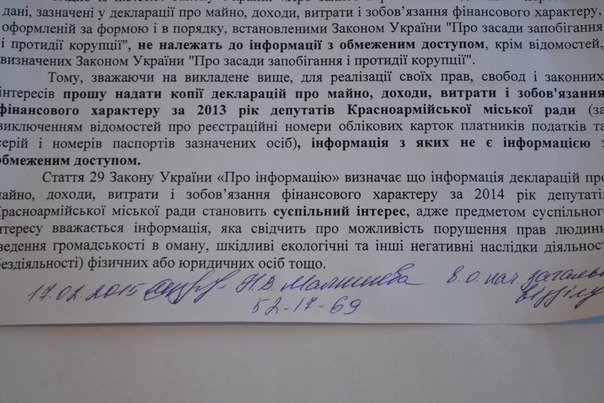 дані, зазначені у декларації про майно, доходи, витрати і зобов'язання фінансового характеру,
оформленій за формою і в порядку, встановленими Законом України "Про засади запобігання
і протидії корупції", не належать до інформації з обмеженим доступом, крім відомостей,
визначених Законом України "Про засади запобігання і протидії корупції".
Тому, зважаючи на викладене вище, для реалізації своїх прав, свобод і законних
інтересів прошу надати копії декларацій про майно, доходи, витрати і зобов'язання
фінансового характеру за 2013 рік депутатів Красноармійської міської ради (за
виключенням відомостей про реєстраційні номери облікових карток платників податків та
серій і номерів паспортів зазначених осіб), інформація з яких не є інформацією з
обмеженим доступом.
Стаття 29 Закону України «Про інформацію» визначає що інформація декларацій про
майно, доходи, витрати і зобов'язання фінансового характеру за 2014 рік депутатів
Красноармійської міської ради становить суспільний інтерес, адже предметом суспільного
інтересу вважається інформація, яка свідчить про можливість порушення прав людини,
введення громадськості в оману, шкідливі екологічні та інші негативні наслідки діяльності
(бездіяльності) фізичних або юридичних осіб тощо.
17.02.2015 Н.В. В.о. нач. загально
відділу
52-17-69